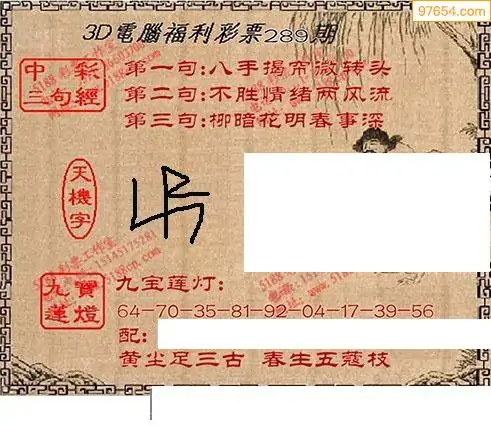 97654.com
3D電腦福利彩票289期
中彩
三句經
第一句:八手揭帘微转头
第二句:不胜情绪两风流
第三句:柳暗花明春事深
天機字
九寶
蓮燈
九宝莲灯:
64-70-35-81-92-04-17-39-56
配:
黄尘足三古 春生五蔻枝